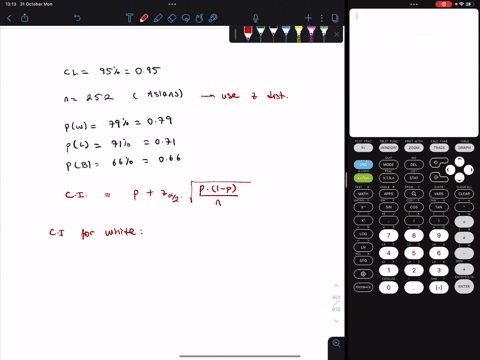 13:13 31 October Mon
CL = 95% = 0.95
n = 252 ( Asians) → use z dist.
p(W) = 79% = 0.79
p(L) = 71% = 0.71
p(B) = 66% = 0.66
C.I. = p + zα/2 · √(p.(1-p)/n)
C.I for white :
WINDOW ZOOM TRACE GRAPH
MODE DEL
X,T,θ,n STAT
MATH APPS CLEAR
SIN COS TAN
LOG 7 8 9
LN 4 5 6
STO 1 2 3
FEEDBACK 0 . (-) ENTER